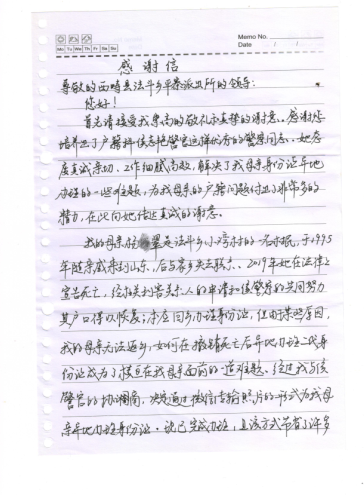 Memo No.
Mo Tu We Th Fr Sa Su
Date / /
感谢信
尊敬的西畴县法斗乡平寨派出所的领导:
您好!
首先请接受我崇高的敬礼与真挚的谢意。感谢您
培养出了户籍科侯志艳警官这样优秀的警察同志。她态
度真诚亲切、工作细腻高效,解决了我母亲身份证异地
办理的一些难题,为我母亲的户籍问题付出了非常多的
精力,在此向她传达真诚的谢意。
我的母亲 是法斗乡小 村的一名村民,于1995
年随亲戚来到山东,后与家乡失去联系、2019年她在法律上
宣告死亡,经相关利害关系人的申请和侯警官的共同努力
其户口得以恢复;本应回乡办理身份证,但由于某些原因,
我的母亲无法返乡,如何在撤销死亡后异地办理二代身
份证成为了横亘在我母亲面前的一道难题。经过我与侯
警官的协调商,决定通过微信传输照片的形式为我母
亲异地办理身份证。现已完成办理,且该方式节省了许多